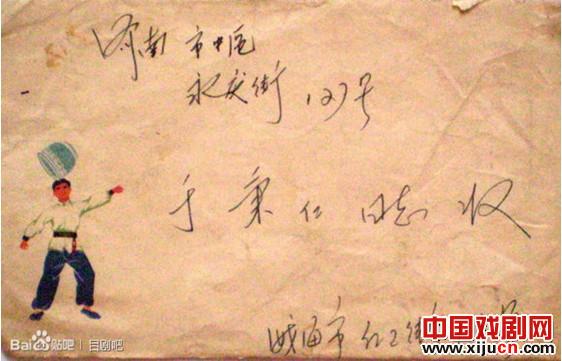 济南市中区
永庆街127号
于秉仁同志收
威海市红卫街
Bai贴吧 | 吕剧吧
中国戏剧网
www.xijucn.com